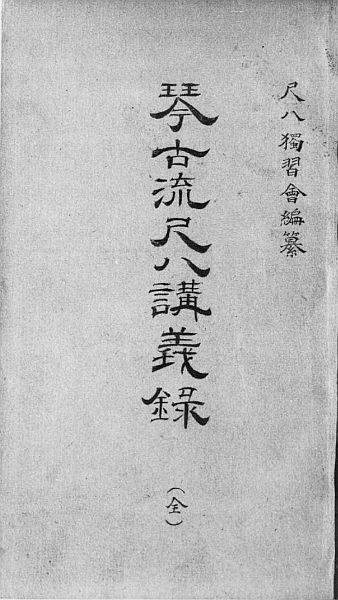 尺八獨習會編纂
琴古流尺八講義錄
(全)